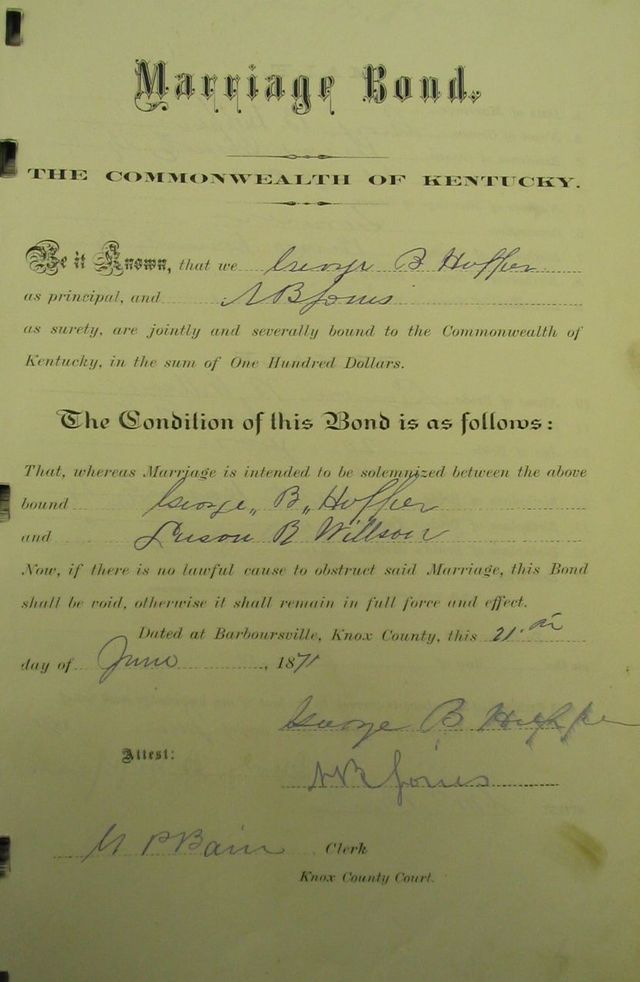 Marriage Bond.
THE COMMONWEALTH OF KENTUCKY.
Be it Known, that we George B Hopper
as principal, and Jones
as surety, are jointly and severally bound to the Commonwealth of
Kentucky, in the sum of One Hundred Dollars.
The Condition of this Bond is as follows:
That, whereas Marriage is intended to be solemnized between the above
bound George " B " Hopper
and R Willson
Now, if there is no lawful cause to obstruct said Marriage, this Bond
shall be void, otherwise it shall remain in full force and effect.
Dated at Barboursville, Knox County, this 21.
day of June, 1871
George B Hopper
Attest:
Jones
P Bain Clerk
Knox County Court.